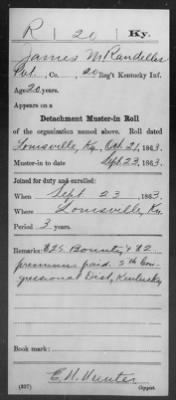 R | 20 | Ky.
James McRandelles
Pvt., Co. , 20 Reg't Kentucky Inf.
Age 20 years.
Appears on a
Detachment Muster-in Roll
of the organization named above. Roll dated
Louisville, Ky, Oct 21, 1863.
Muster-in to date Sept 23, 1863.
Joined for duty and enrolled:
When Sept 23, 1863.
Where Louisville, Ky.
Period 3 years.
Remarks: $25 Bounty & $2
premium paid. 5th Con-
gressional Dist, Kentucky
Book mark:
E. H. Hunter
(337) Copyist.